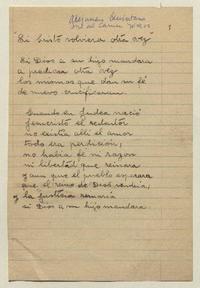 Alejandro
del Carmen
"Si Cristo volviera otra vez"
Si Dios a su hijo mandara
a predicar otra vez
los mismos que dan su fé
de nuevo crucificaran.
Cuando en Judea nació
Jesucristo el redentor
no existía allí el amor
todo era perdición;
no había fé ni razon
ni libertad que reinara
y aun que el pueblo esperara
que el reino de Dios vendria,
y la justicia
si Dios a su hijo mandara.